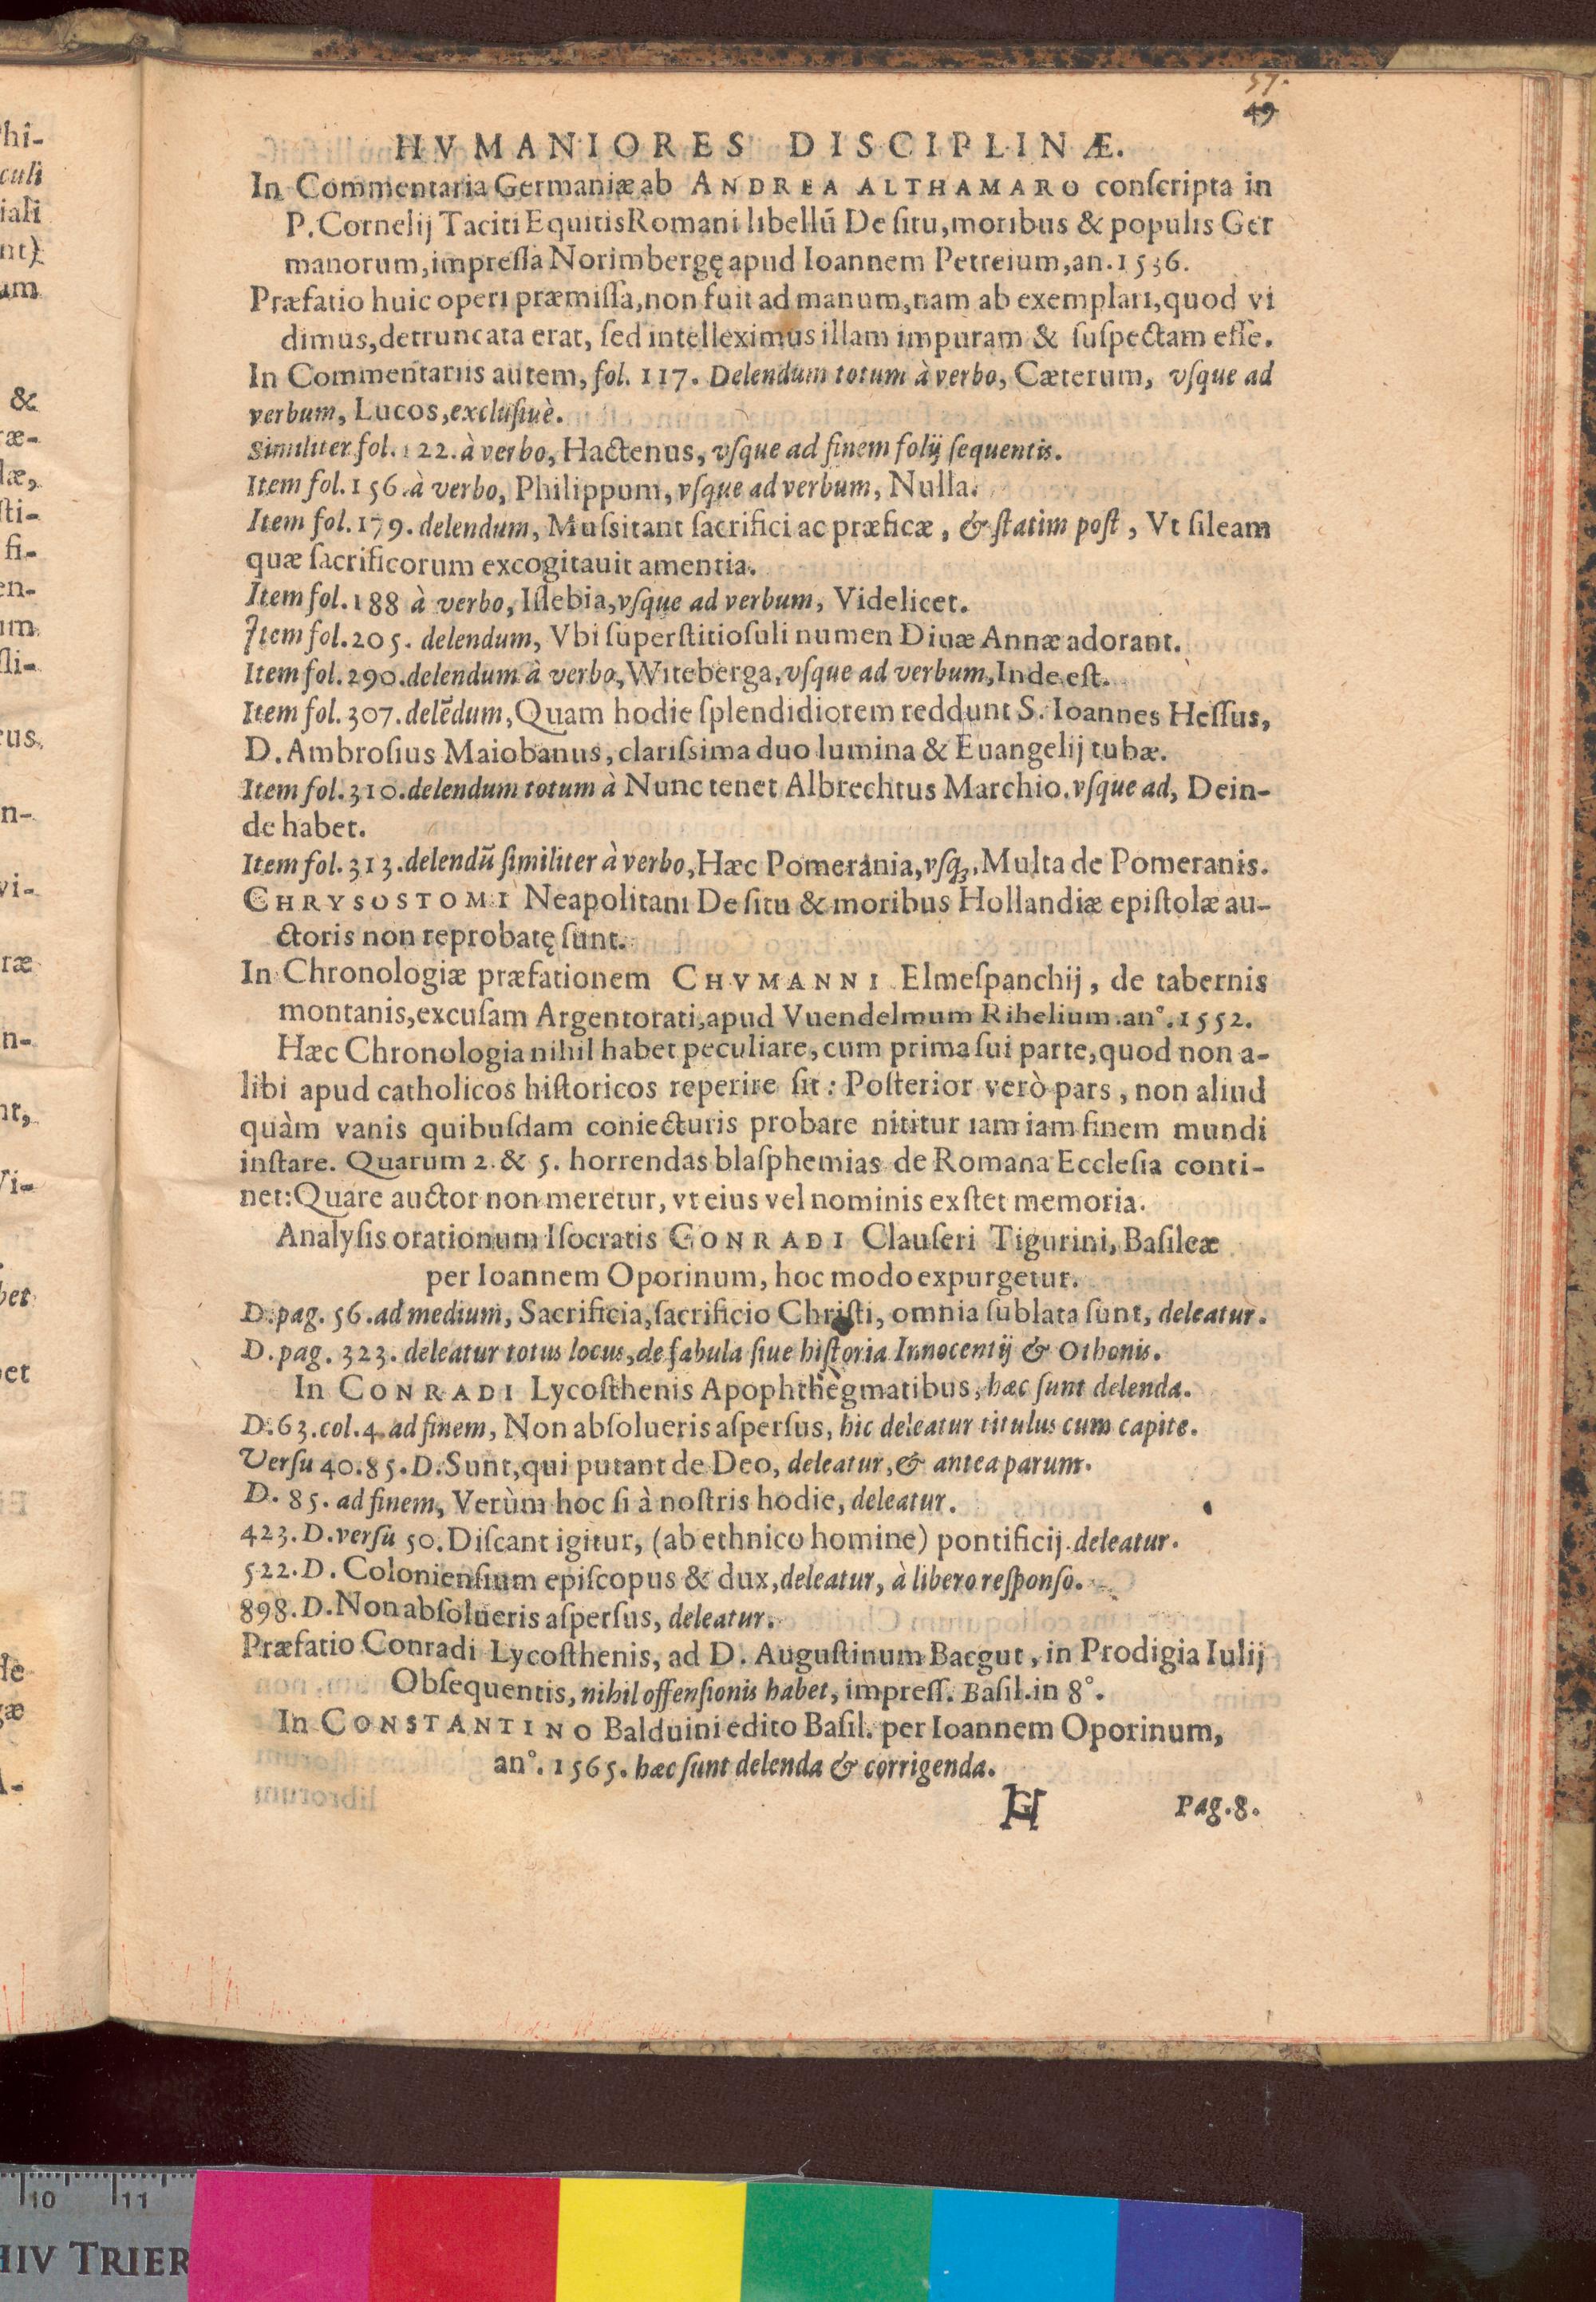 57.
49
HVMANIORES DISCIPLINÆ.
In Commentaria Germaniæ ab ANDREA ALTHAMARO conſcripta in
P. Cornelij Taciti Equitis Romani libellū De ſitu, moribus & populis Ger
manorum, impreſſa Norimbergę apud Ioannem Petreium, an. 1536.
Præfatio huic operi præmiſſa, non fuit ad manum, nam ab exemplari, quod vi
dimus, detruncata erat, ſed intelleximus illam impuram & ſuſpectam eſſe.
In Commentariis autem, fol. 117. Delendum totum à verbo, Cæterum, vſque ad
verbum, Lucos, excluſiuè.
Similiter fol. 122. à verbo, Hactenus, vſque ad finem folij ſequentis.
Item fol. 156. à verbo, Philippum, vſque ad verbum, Nulla.
Item fol. 179. delendum, Muſsitant ſacrifici ac præficæ, & ſtatim poſt, Vt ſileam
quæ ſacrificorum excogitauit amentia.
Item fol. 188 à verbo, Iſlebia, vſque ad verbum, Videlicet.
Item fol. 205. delendum, Vbi ſuperſtitioſuli numen Diuæ Annæ adorant.
Item fol. 290. delendum à verbo, Witeberga, vſque ad verbum, Inde eſt.
Item fol. 307. delēdum, Quam hodie ſplendidiorem reddunt S. Ioannes Heſſus,
D. Ambroſius Maiobanus, clariſsima duo lumina & Euangelij tubæ.
Item fol. 310. delendum totum à Nunc tenet Albrechtus Marchio. vſque ad, Dein-
de habet.
Item fol. 313. delendū ſimiliter à verbo, Hæc Pomerania, vſq;, Multa de Pomeranis.
CHRYSOSTOMI Neapolitani De ſitu & moribus Hollandiæ epiſtolæ au-
ctoris non reprobatę ſunt.
In Chronologiæ præfationem CHVMANNI Elmeſpanchij, de tabernis
montanis, excuſam Argentorati, apud Vuendelmum Rihelium. anº. 1552.
Hæc Chronologia nihil habet peculiare, cum prima ſui parte, quod non a-
libi apud catholicos hiſtoricos reperire ſit: Poſterior verò pars, non aliud
quàm vanis quibuſdam coniecturis probare nititur iam iam finem mundi
inſtare. Quarum 2. & 5. horrendas blaſphemias de Romana Eccleſia conti-
net: Quare auctor non meretur, vt eius vel nominis exſtet memoria.
Analyſis orationum Iſocratis CONRADI Clauſeri Tigurini, Baſileæ
per Ioannem Oporinum, hoc modo expurgetur.
D. pag. 56. ad medium, Sacrificia, ſacrificio Chriſti, omnia ſublata ſunt, deleatur.
D. pag. 323. deleatur totus locus, de fabula ſiue hiſtoria Innocentij & Othonis.
In CONRADI Lycoſthenis Apophthegmatibus, hæc ſunt delenda.
D. 63. col. 4. ad finem, Non abſolueris aſperſus, hic deleatur titulus cum capite.
Verſu 40. 85. D. Sunt, qui putant de Deo, deleatur, & antea parum.
D. 85. ad finem, Verùm hoc ſi à noſtris hodie, deleatur.
423. D. verſu 50. Diſcant igitur, (ab ethnico homine) pontificij. deleatur.
522. D. Colonienſium epiſcopus & dux, deleatur, à libero reſponſo.
898. D. Non abſolueris aſperſus, deleatur.
Præfatio Conradi Lycoſthenis, ad D. Auguſtinum Bacgut, in Prodigia Iulij
Obſequentis, nihil offenſionis habet, impreſſ. Baſil. in 8º.
In CONSTANTINO Balduini edito Baſil. per Ioannem Oporinum,
anº. 1565. hæc ſunt delenda & corrigenda.
H Pag. 8.
10 11
HIV TRIER